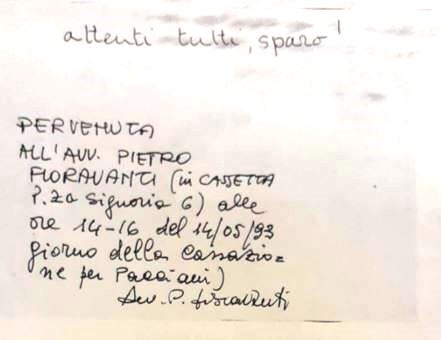 attenti tutti, sparo!
PERVENUTA
ALL'AVV. PIETRO
FIORAVANTI (in CASSETTA
P.za Signoria 6) alle
ore 14-16 del 14/05/93
giorno della Cassazio=
ne per Pacciani)
Avv. P. Fioravanti